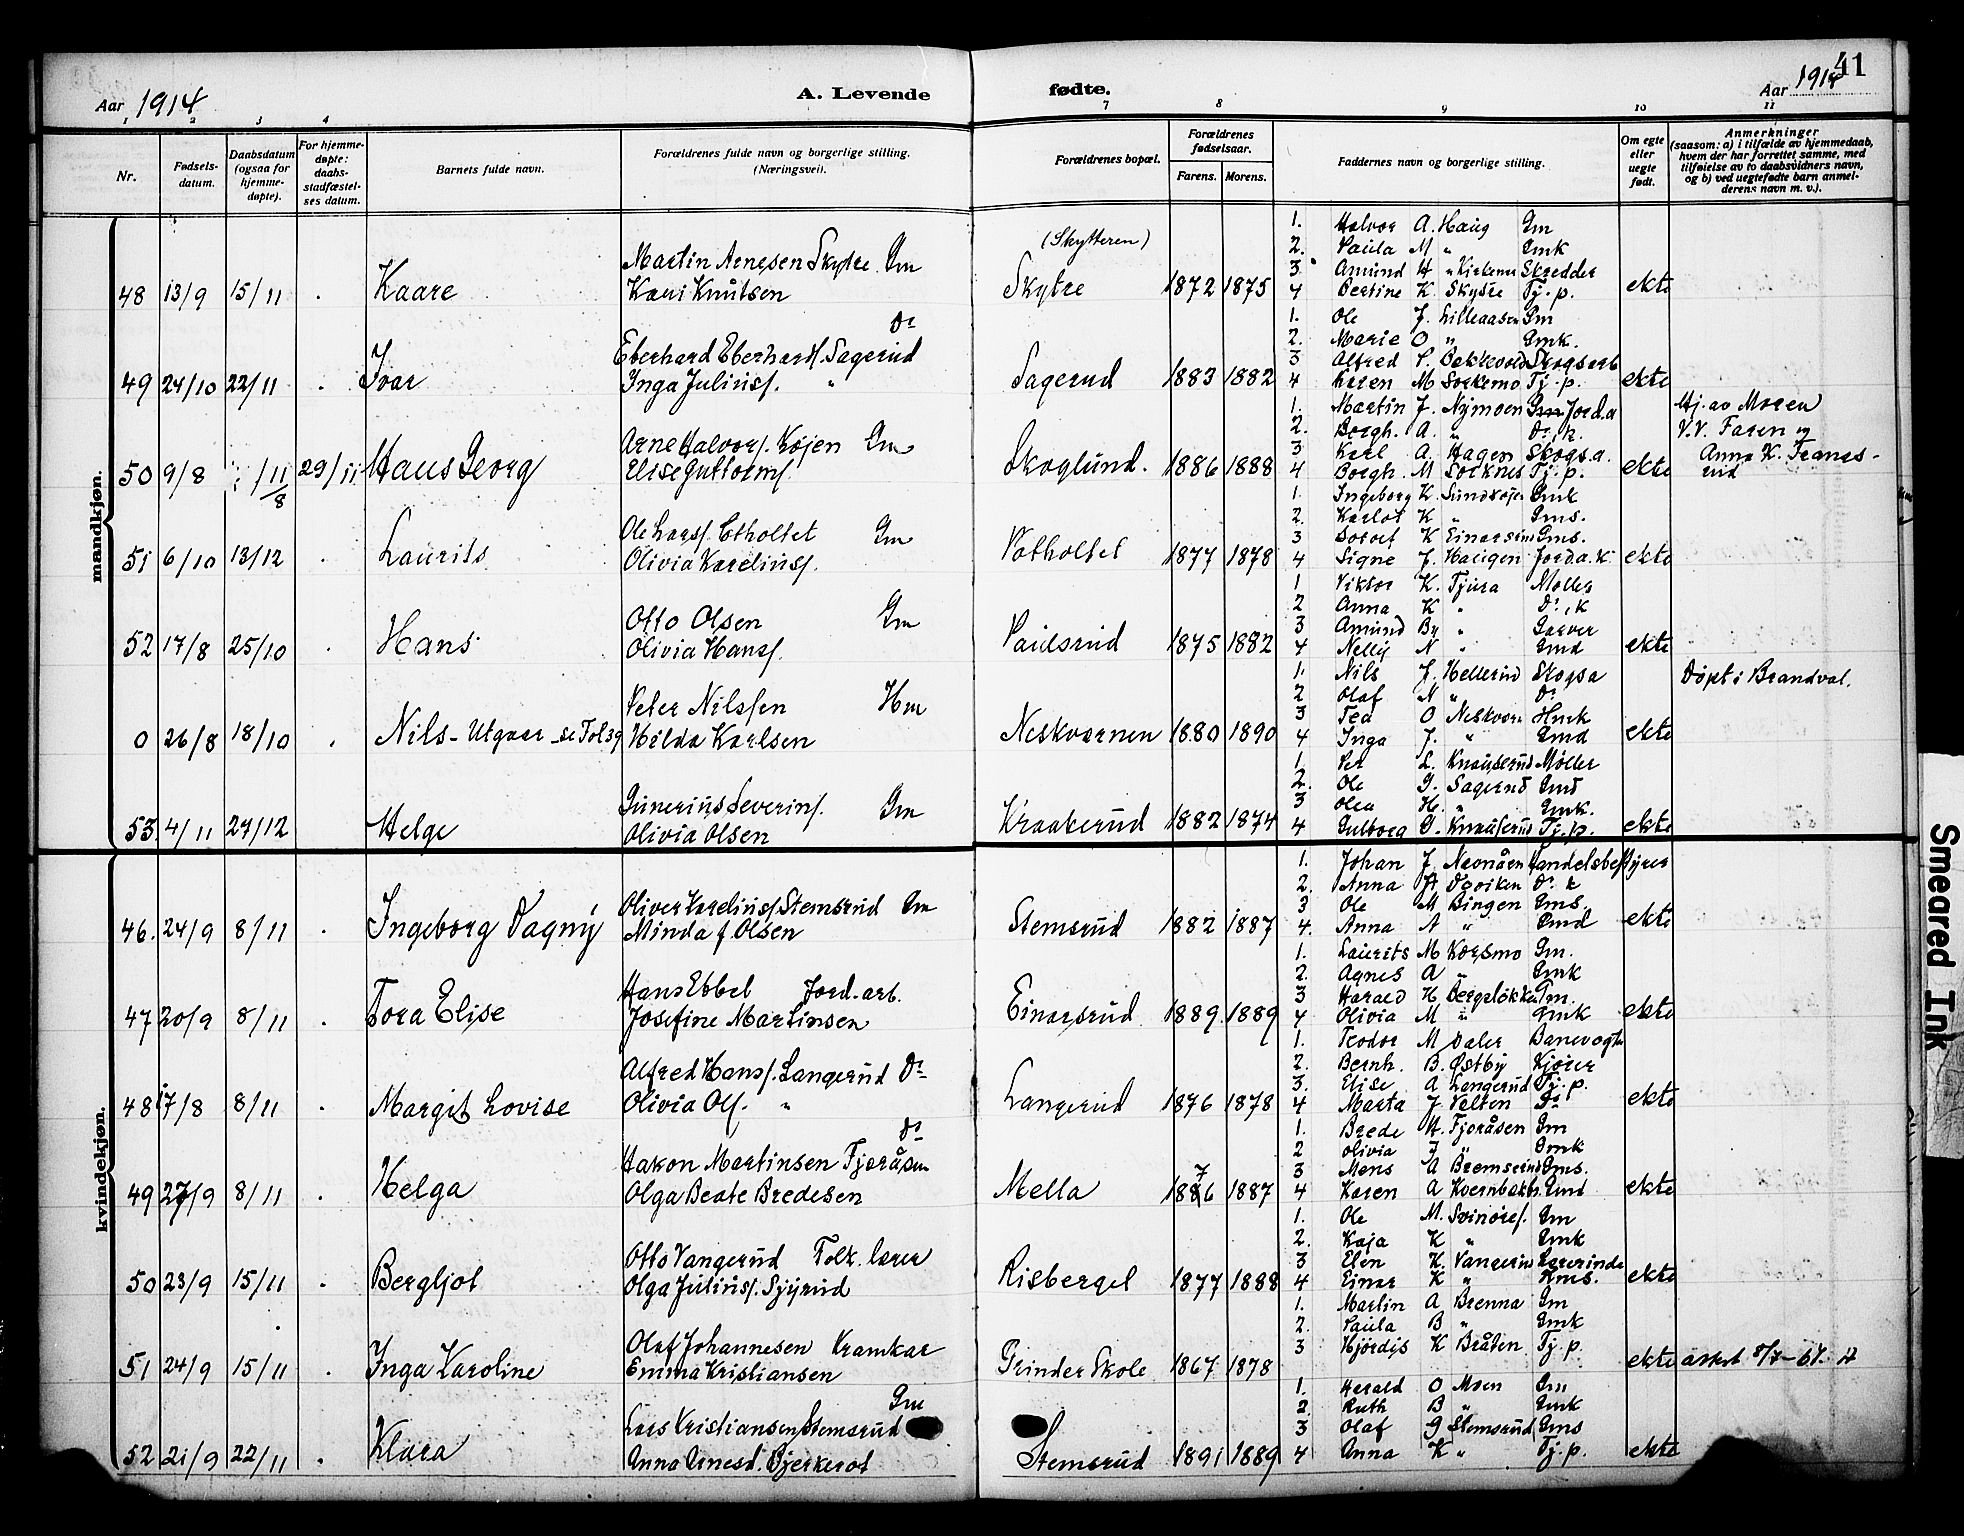 41
Aar 1914 A. Levende fødte. Aar 1914
1 2 3 4 7 8 9 10 11
Nr.
Fødsels-
datum.
Daabsdatum
(ogsaa for
hjemme-
døpte).
For hjemme-
døpte:
daabs-
stadfæstel-
ses datum.
Barnets fulde navn.
Forældrenes fulde navn og borgerlige stilling.
(Næringsvei).
Forældrenes bopæl.
Forældrenes
fødselsaar.
Farens. Morens.
Faddernes navn og borgerlige stilling.
Om egte
eller
uegte
født.
Anmerkninger
(saasom: a) i tilfælde av hjemmedaab,
hvem der har forrettet samme, med
tilføielse av to daabsvidners navn,
og b) ved uegtefødte barn anmel-
derens navn m. v.).
mandkjøn.
48 13/9 15/11 Kaare
Martin Arnesen Skytre Gm
Kari Knutsen
(Skytteren)
Skytre 1872 1875
1. Halvor A. Haug Gm
2. Paula M " Gmk
3 Amund H " Kirkemo Skredder
4 Bertine K. Skytre Tj.p.
ekte
49 24/10 22/11 Ivar
Do
Eberhard Eberhards. Sagerud
Inga Julius. "
Sagerud 1883 1882
1. Ole J. Lilleaasen Gm
2. Marie O " Gmk.
3 Alfred P. Bekkevold Skogsarb
4 Karen M Sorkmo Tj.p.
ekte
50 9/8 /11/8 29/11 Hans Georg
Arne Halvors. Kojen Gm
Elise Guttorms.
Skoglund. 1886 1888
1. Martin J. Nymoen Gm Jord.a
2. Borgh. A. " Do, k.
3 Karl A. Hagen Skogs.a.
4 Borgh. M Sorknes Tj.p.
ekte
Hj. av Moren
V.V. Faren og
Anna K. Frangs-
rud
51 6/10 13/12 Laurits
Ole Lars. Etholtet Gm
Olivia Karelius.
Potholtet 1877 1878
1. Ingeborg K. Sundkojen Gmk
2. Karlot K " Gms.
3 Torvet K Einarsrud Gms.
4 Signe J. Haugen Jord.a.k.
ekte
52 17/8 25/10 Hans
Otto Olsen Gm
Olivia Hans.
Paulsrud 1875 1882
1 Viktor K. Tjura Møller
2 Anna K " Do, k
3 Amund By " Garver
4 Nelly N " Gmd
ekte
0 26/8 18/10 Nils - Utgaar - se Fol 39
Peter Nilssen Hm
Hilda Karlsen
Neskvernen 1880 1890
1. Nils J. Hellerud Skogsa
2 Olaf N " Do
3 Tea O Neskvern Hmk
4 Inga J. " Gmd
ekte
Døpt i Brandval.
53. 4/11 27/12 Helge
Gunerius Severins. Gm
Olivia Olsen
Kraakerud 1882 1874
1. Per L. Knauserud Møller
2. Ole G. Sagerud Gmd
3 Olea H. " Gmk.
4 Gulborg O. Knauserud Tj.p.
ekte
kvindekjøn.
46. 24/9 8/11 Ingeborg Dagny
Oliver Karelius. Stemsrud Gm
Minda f. Olsen
Stemsrud 1882 1887
1. Johan J. Neonåen Handelsbestyrer
2. Anna A Dgoiken Do k
3 Ole M Bingen Gms.
4. Anna A " Gmd
ekte
47 20/9 8/11 Tora Elise
Hans Ebbel Jord-arb.
Josefine Martinsen
Einarsrud 1889 1889
1. Laurits M Korsmo Gm.
2. Agnes A " Gmk
3 Harald H Bergeløkken Gm.
4 Olivia M " Gmk
ekte
48 17/8 8/11 Margit Lovise
Alfred Hans. Langerud Do
Olivia Ols. "
Langerud 1876 1878
1. Teodor M Daler Banevogter
2. Bernh. B. Østby Kjører
3. Elise A Langerud Tj.p.
4 Marta J Velten Do
ekte
49 27/9 8/11 Helga
Do
Hakon Martinsen Fjeråsen
Olga Beate Bredesen
Mella 1886 7 1887
1. Brede M. Fjeråsen Gm
2 Olivia J " Gmk
3 Mons A Bremserud Gms.
4 Karen A Kvernbakk. Gmd
ekte
50 23/9 15/11 Bergljot
Otto Vangerud Folk. lærer
Olga Julius. Gjyrud
Risberget 1877 1888
1. Ole M. Svinøref. Gm
2. Kaja K " Gmk
3 Elen K. Vangerud Lærerinde
4 Einar K " Hms.
ekte
51 24/9 15/11 Inga Karoline
Olaf Johannesen Kramkar
Emma Kristiansen
Grinder Skole 1867 1878
1. Martin A Brenna Gm
2. Paula B " Gmk
3 Hjördis K Bråten Tj.p.
ekte
attest 8/7-67.
52 21/9 22/11 Klara
Gm
Lars Kristiansen Stemsrud
Anna Arnesd. Bjerkerot
Stemsrud 1891 1889
1. Harald O Moen Gm
2. Ruth B " Gmk
3 Olaf G Stemsrud Gms
4 Anna K " Tj.p.
ekte
Smeared Ink